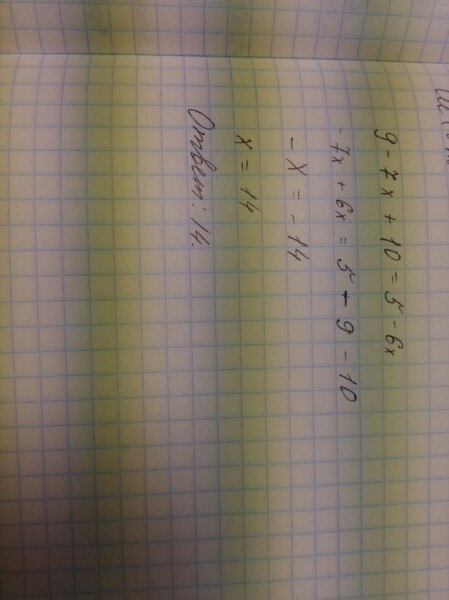 9 - 7x + 10 = 5 - 6x
-7x + 6x = 5 - 9 - 10
-x = -14
x = 14
Ответ: 14.